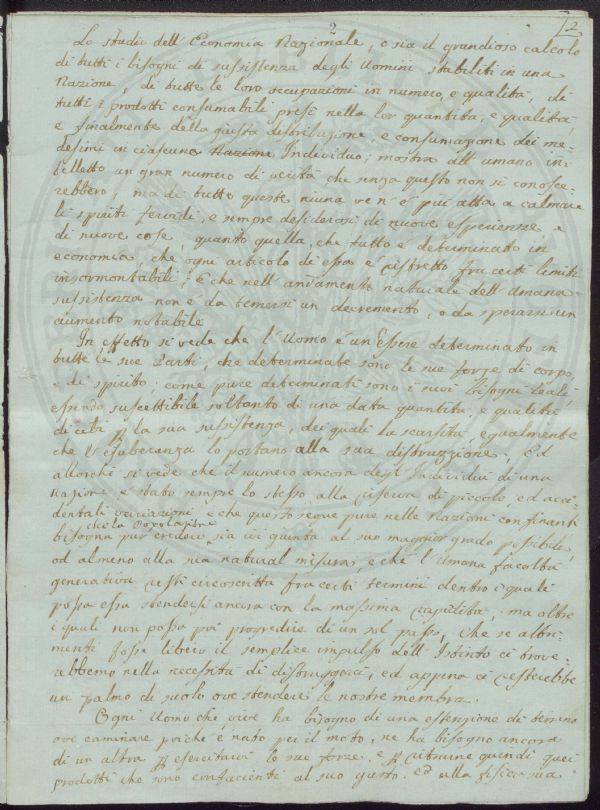 2
2
Lo studio dell'Economia Nazionale, o sia il grandioso calcolo
di tutti i bisogni di sussistenza degli Uomini stabiliti in una
Nazione, di tutte le loro occupazioni in numero, e qualità, di
tutti i prodotti consumabili presi nella lor quantità, e qualità,
e finalmente della giusta distribuzione, e consumazione dei me-
desimi in ciascuna Nazione Individuo; mostra all'umano in-
telletto un gran numero di verità, che senza questo non si conosce-
rebbero; ma di tutte queste niuna ve n'é piú atta a calmare
li spiriti fervidi, e sempre desiderosi di nuove esperienze, e
di nuove cose, quanto quella, che tutto é determinato in
economia, che ogni articolo di essa é ristretto fra certi limiti
insormontabili, e che nell'andamento naturale dell'Umana
sussistenza non é da temersi un decremento, o da sperarsi un
aumento notabile
In effetto si vede che l'Uomo é un Essere determinato in
tutte le sue Parti, che determinate sono le sue forze di corpo,
e di spirito; come pure determinati sono i suoi bisogni reali
essendo suscettibile soltanto di una data quantità, e qualità
di cibi p la sua sussistenza, dei quali la scarsità, egualmente
che l'esuberanza lo portano alla sua distruzzione. Ed
allorché si vede che il numero ancora degl'Individui di una
Nazione é stato sempre lo stesso alla riserva di piccole, ed acci-
dentali variazioni e che questo segue pure nelle Nazioni confinanti
che la Popolazione
bisogna pur credere sia ivi giunta al suo maggior grado possibile,
od almeno alla sua natural misura, e che l'Umana facoltà
generativa resti circoscritta fra certi termini dentro i quali
possa essa stendersi ancora con la massima rapidità, ma oltre
i quali non possa poi progredire di un sol passo, che se altri-
menti fosse libero il semplice impulso dell'Istinto ci trove-
rebbemo nella necessità di distruggerci, ed appena ci resterebbe
un palmo di suolo ove stendere le nostre membra.
Ogni Uomo che vive ha bisogno di una estenzione di terreno
ove caminare poiche é nato per il moto, ne ha bisogno ancora
di un altra p esercitarvi le sue forze, e p ritrarne quindi quei
prodotti che sono confacienti al suo gusto, ed alla fisica sua